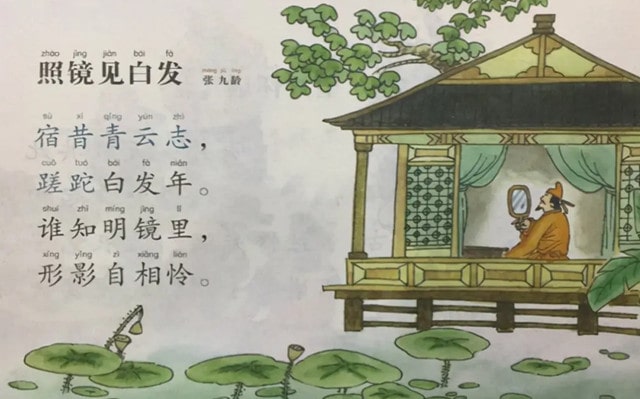 zhào jìng jiàn bái fà
照镜见白发 张九龄
sù xī qīng yún zhì
宿昔青云志，
cuō tuó bái fà nián
蹉跎白发年。
shuí zhī míng jìng lǐ
谁知明镜里，
xíng yǐng zì xiāng lián
形影自相怜。